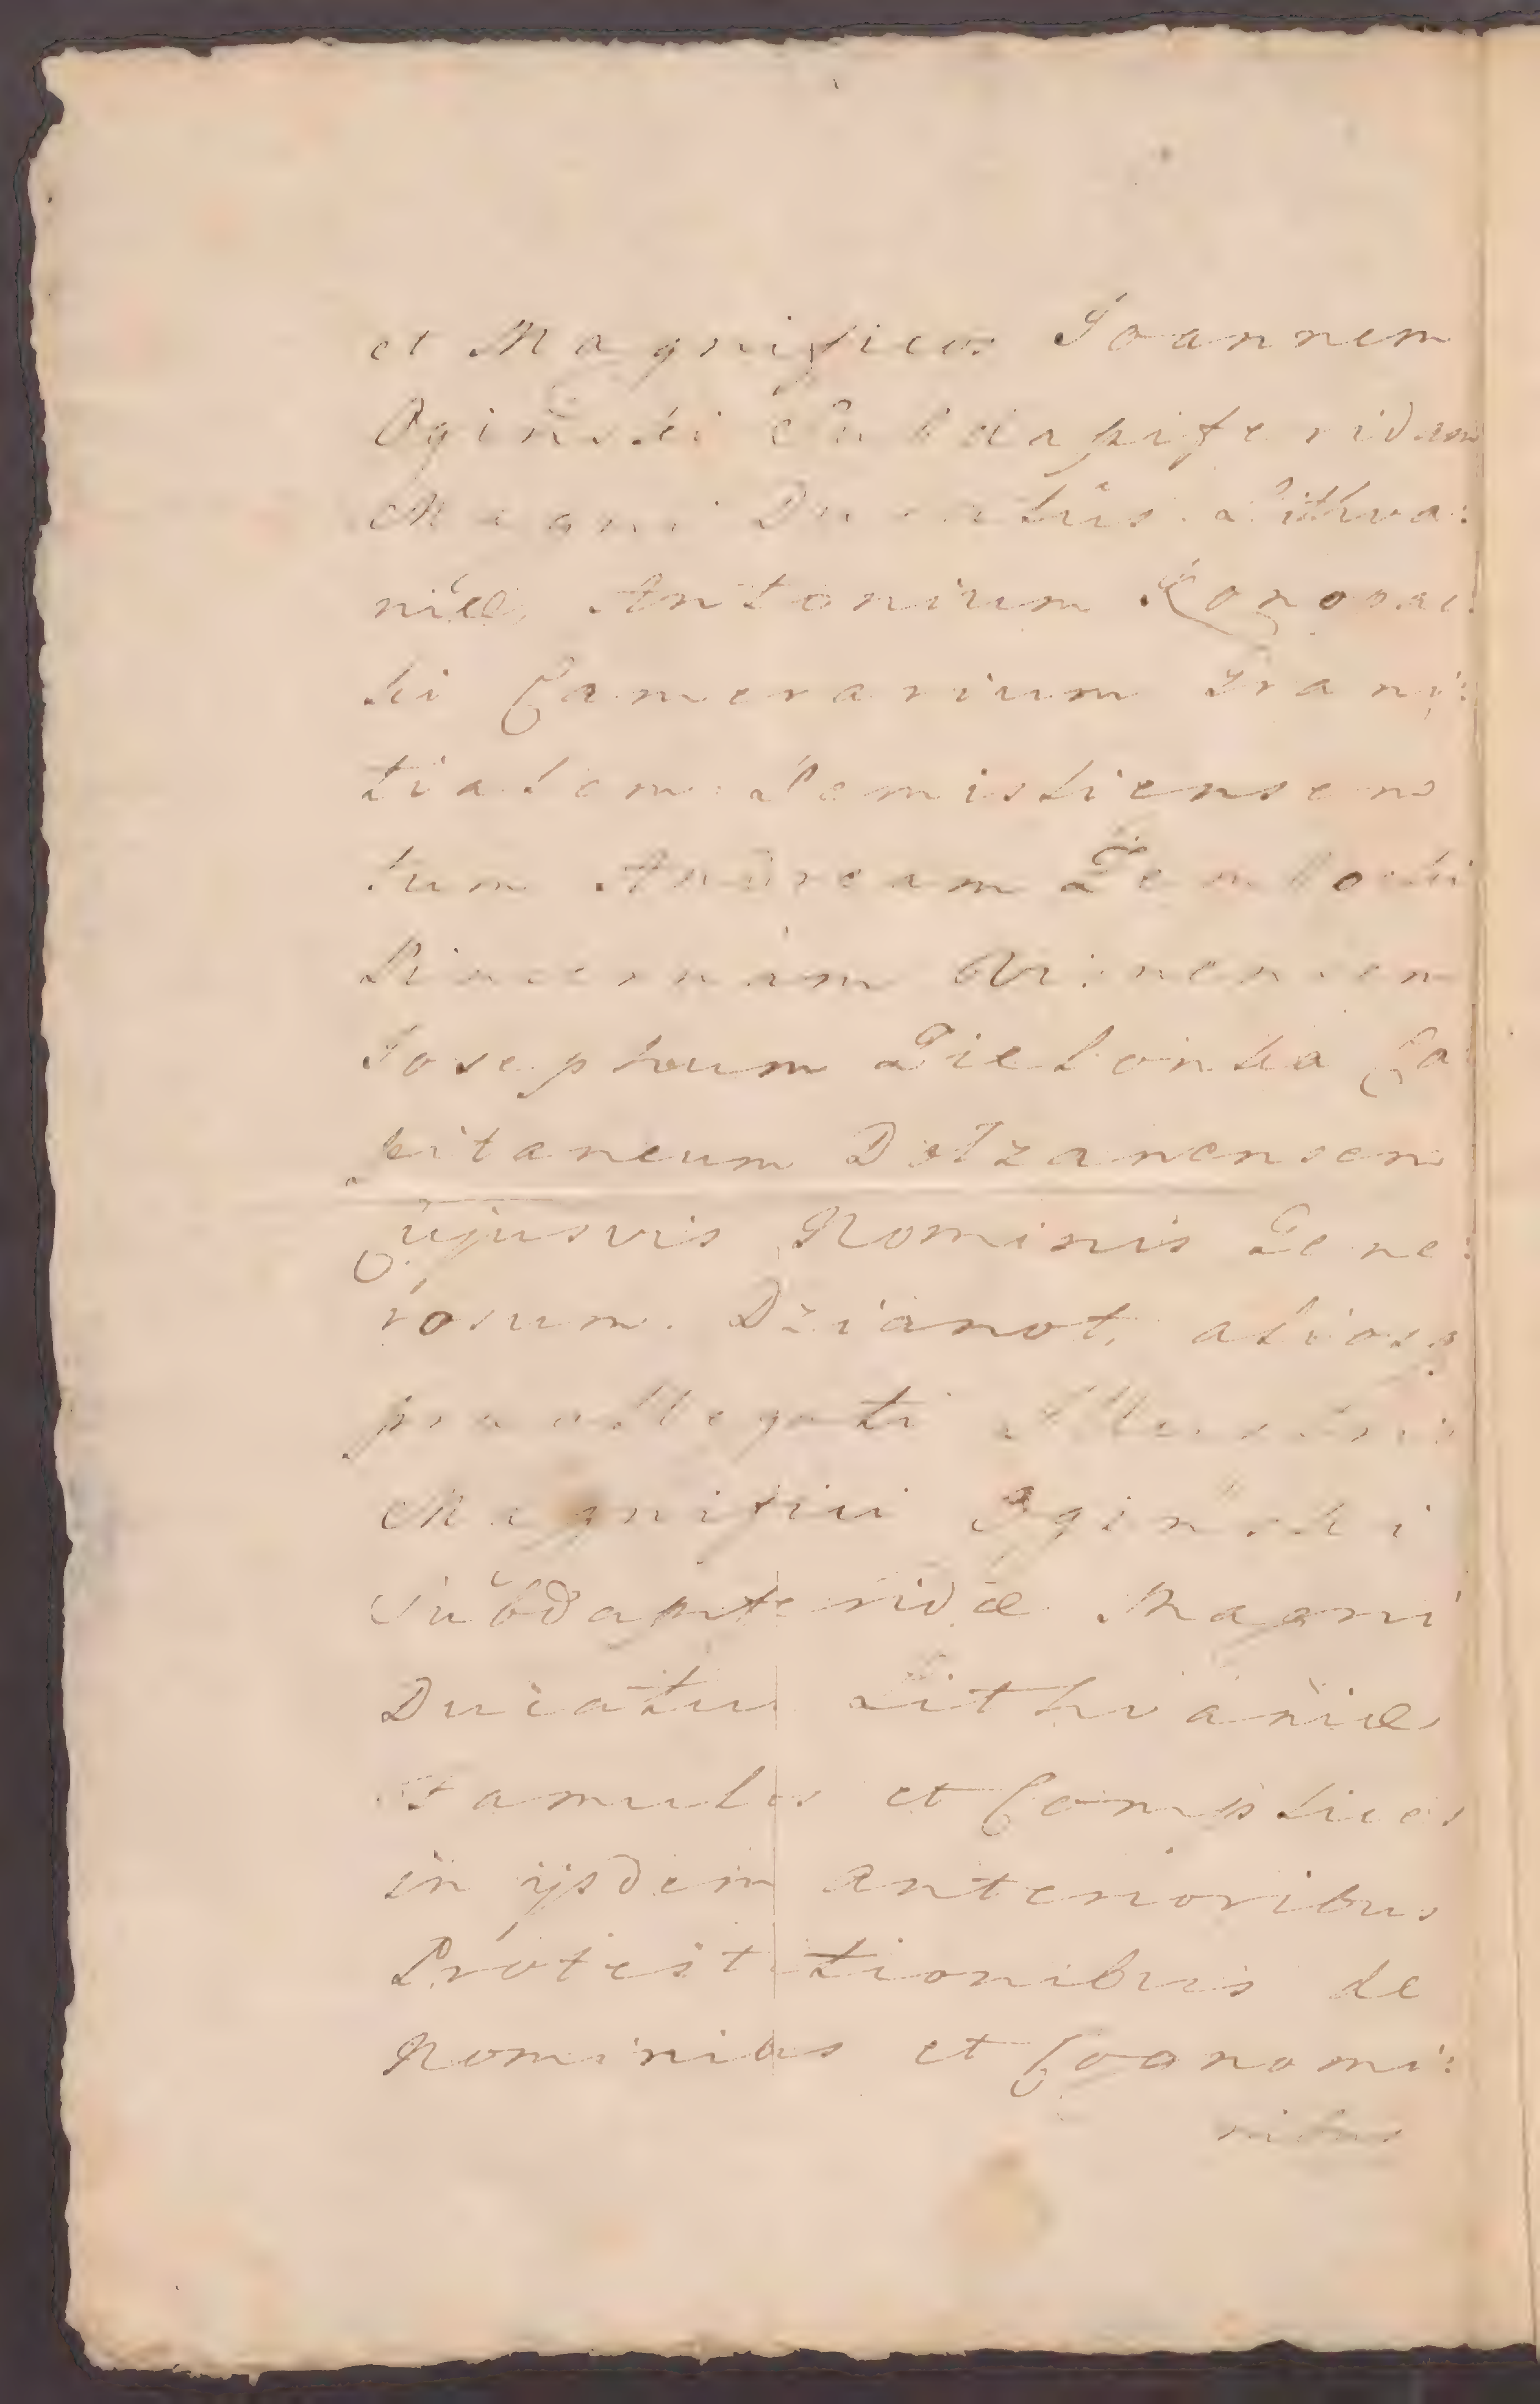 et Magnificos Joannem
Oginski Subdapiferidam
Magni Ducatûs Lithva:
niæ, Antonium
ki Camerarium Grani:
tialem
tum Andream
Pincernam
Josephum Zielonka Ca
pitaneum
Cujusvis Nominis Gene:
rosum Dzianot, aliosq
præallegati Illustris
Magnifici Oginski
Subdapiferidæ Magni
Ducatus Lithvaniæ
Famulos et Complices
in ijsdem anterioribus
Protestationibus de
Nominibus et Cognomi:
nibus